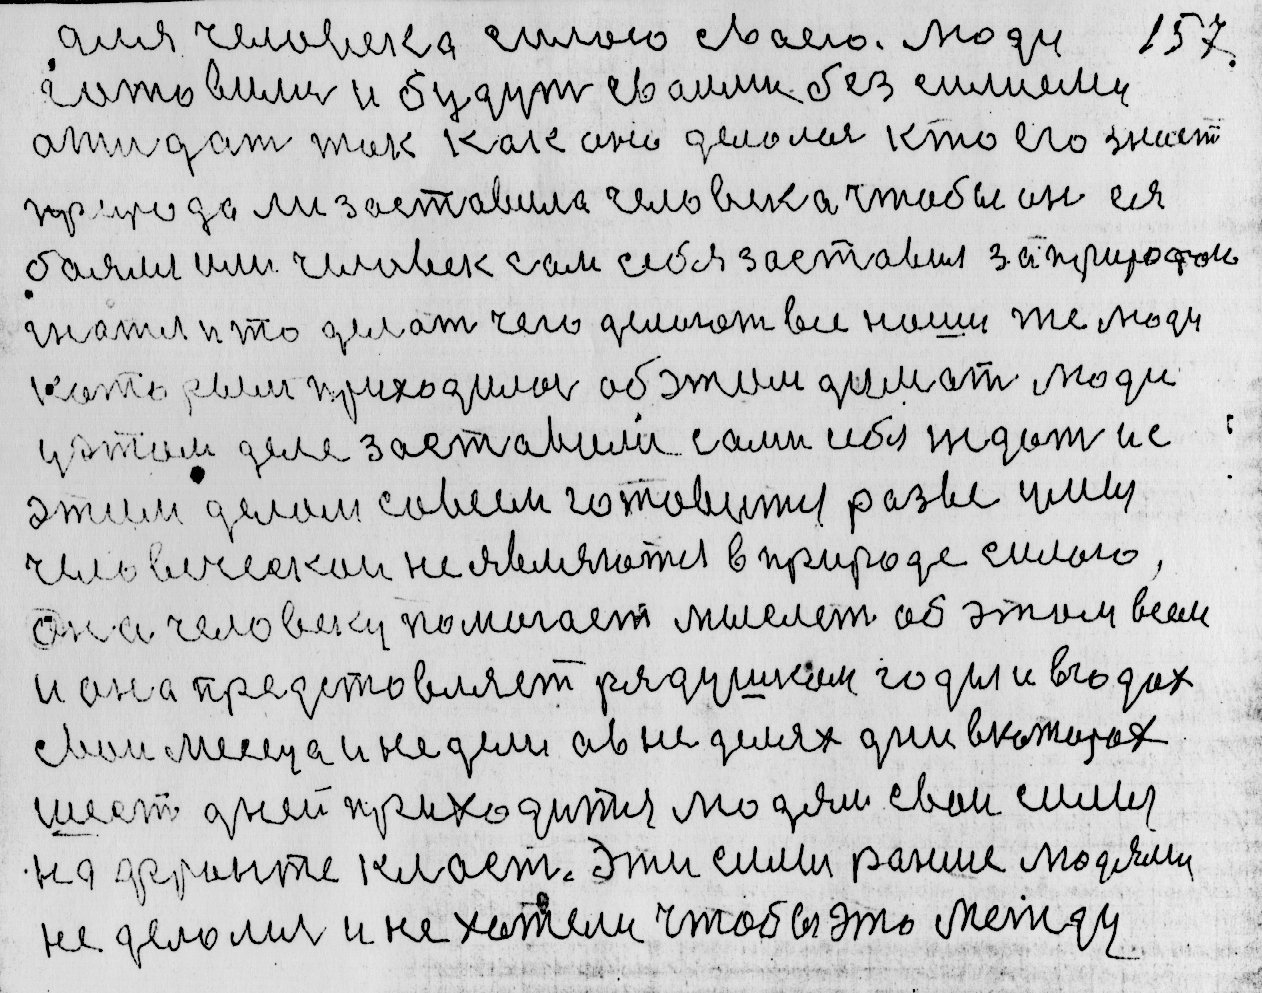 для человека силою своего. Люди 157.
готовилися и будут своими без силиями
ожидат так как оно делолся кто его знает
природа ли заставила человека чтобы он ея
боялся или человек сам себя заставил за природою
гнатся и то делат чего делают все наши же люди
которым приходилос об этим думат люди
у этом деле заставили сами себя ждат и с
этим делом совсем готовится разве умы
человеческои не являются в природе силою,
она человеку помогает мыслет об этом всем
и она предстовляет рядушком годы и в годах
свои месеца и недели а в неделях дни в которых
шест дней приходится людям свои силы
на фронте класт. Эти силы ранше людями
не делолися и не хотели чтобы это между